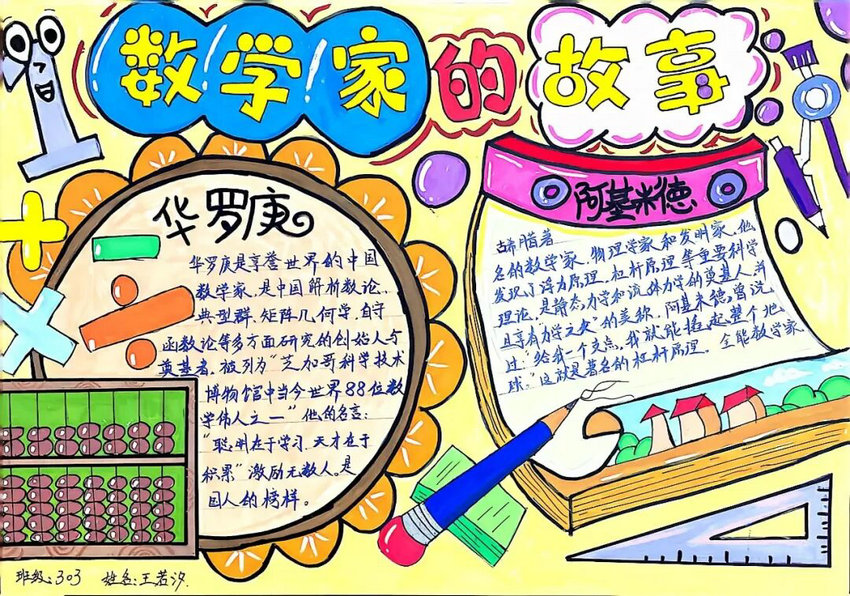 数学家的故事
华罗庚
华罗庚是享誉世界的中国
数学家,是中国解析数论、
典型群、矩阵几何学、自守
函数论等多方面研究的创始人与
奠基者,被列为“芝加哥科学技术
博物馆中当今世界88位数
学伟人之一”他的名言:
“聪明在于学习,天才在于
积累”激励无数人。是
国人的榜样。
阿基米德
古希腊著
名的数学家、物理学家和发明家、他
发现了浮力原理、杠杆原理等重要科学
理论,是静态力学和流体力学的奠基人,并
且享有力学之父”的美称,阿基米德曾说
过:“给我一个支点,我就能撬起整个地
球。”这就是著名的杠杆原理。全能数学家
班级:303 姓名:王若汐